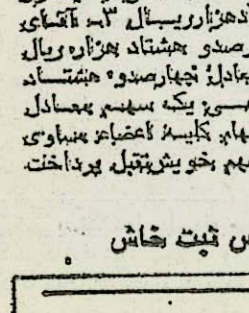 هزار ریال ۳ـ آقای
صدو هشتاد هزار ریال
معادل چهارصدو هشتاد
یک سهم معادل
کلیه اعضاء مساوی
سهم خویش نقبل پرداخت
ثبت خاش